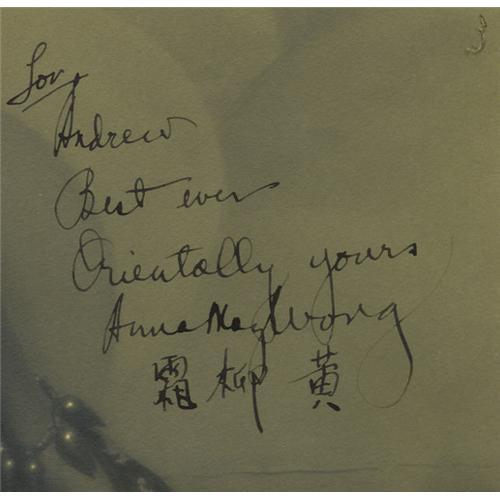 For
Andrew
Best ever
Orientally yours
Anna May Wong
霜柳黄